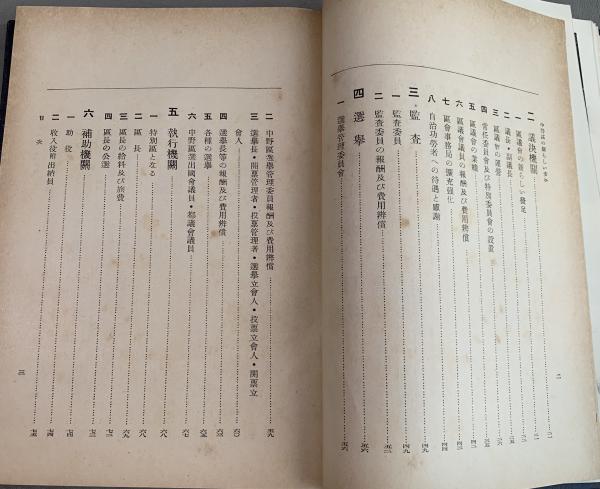 二 議決機關
一 區議會の新らしい發足
二 議長・副議長
三 區議會の運營
四 常任委員會及び特別委員會の設置
五 區議會の業績
六 區議會議員の報酬及び費用辨償
七 區會事務局の擴充强化
八 自治功勞者への待遇と感謝
三 監査
一 監査委員
二 監査委員の報酬及び費用辨償
四 選擧
一 選擧管理委員會
二 中野區選擧管理委員報酬及び費用辨償
三 選擧長・開票管理者・投票管理者・選擧立會人・投票立會人・開票立
會人
四 選擧長等の報酬及び費用辨償
五 各種の選擧
六 中野區選出國會議員・都議會議員
五 執行機關
一 特別區となる
二 區長
三 區長の給料及び旅費
四 區長の公選
六 補助機關
一 助役
二 收入役附出納員
目次
三